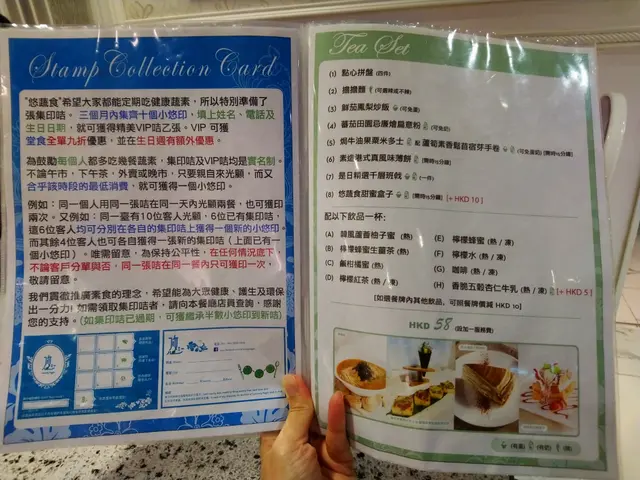 Stamp Collection Card
"悠蔬食"希望大家都能定期吃健康蔬素，所以特別準備了
張集印咭。 三個月內集齊十個小悠印，填上姓名、電話及
生日日期，就可獲得精美VIP咭乙張。VIP 可獲
堂食全單九折優惠，並在生日週有額外優惠。
為鼓勵每個人都多吃幾餐蔬素，集印咭及VIP咭均是實名制。
不論午市，下午茶，外賣或晚市，只要親自來光顧，而又
合乎該時段的最低消費，就可獲得一個小悠印。
例如：同一個人用同一張咭在同一天內光顧兩餐，也可獲印
兩次。又例如：同一臺有10位客人光顧，6位已有集印咭，
這6位客人均可分別在各自的集印咭上獲得一個新的小悠印。
而其餘4位客人也可各自獲得一張新的集印咭 (上面已有一
個小悠印）。唯需留意，為保持公平性，在任何情況底下，
不論客戶分單與否，同一張咭在同一餐內只可獲印一次，
敬請留意。
我們貫徹推廣素食的理念，希望能為大眾健康、護生及環保
出一分力! 如需領取集印咭者，請向本餐廳店員查詢，感謝
您的支持。(如集印咭已過期，可獲繼承半數小悠印到新咭)
Tea Set
(1) 點心拼盤 (四件)
(2) 擔擔麵 (可選辣或不辣)
(3) 鮮茄鳳梨炒飯 (可免蛋)
(4) 蕃茄田園忌廉燴扁意粉 (可免奶)
(5) 焗牛油果粟米多士 配 蘆筍素香鬆蓉宿芽手卷 (可免蛋奶) (需時15分鐘)
(6) 素達港式真風味薄餅 (需時15分鐘)
(7) 是日精選千層班戟 (一件)
(8) 悠蔬食甜蜜盒子 (需時15分鐘) [+ HKD 10]
配以下飲品一杯:
(A) 韓風蘆薈柚子蜜 (熱)
(B) 檸檬蜂蜜生薑茶 (熱)
(C) 鹹柑橘蜜 (熱)
(D) 檸檬紅茶 (熱 / 凍)
(E) 檸檬蜂蜜 (熱 / 凍)
(F) 檸檬水 (熱 / 凍)
(G) 咖啡 (熱 / 凍)
(H) 香脆五穀杏仁牛乳 (熱 / 凍) [+ HKD 5]
[如選餐牌內其他飲品，可照餐牌價減 HKD 10]
HKD 58
(設加一服務費)
(有蛋) (有奶) (辣)